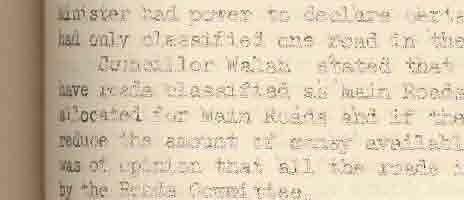 Minister had power to declare certa
had only classified one road in the
Councillor Walsh stated that
have roads classified as Main Roads
allocated for Main Roads and if the
reduce the amount of money availabl
was of opinion that all the roads i
by the Roads Committee.